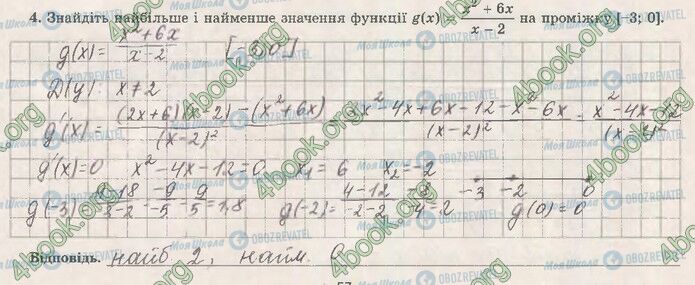 4. Знайдіть найбільше і найменше значення функції g(x) = x² + 6x / x − 2 на проміжку [−3; 0].
g(x) = x² + 6x / x − 2 [−3; 0]
D(y): x ≠ 2
g'(x) = (2x+6)(x−2) − (x²+6x) / (x−2)² = 2x² − 4x + 6x − 12 − x² − 6x / (x−2)² = x² − 4x − 12 / (x−2)²
g'(x) = 0 x² − 4x − 12 = 0 x₁ = 6 x₂ = −2 −3 −2 0
g(−3) = 9−18 / −3−2 = −9 / −5 = 9 / 5 = 1,8 g(−2) = 4−12 / −2−2 = −8 / −4 = 2 g(0) = 0
Відповідь. найб 2, найм.
57
4book.org
Моя Школа OBOZREVATEL